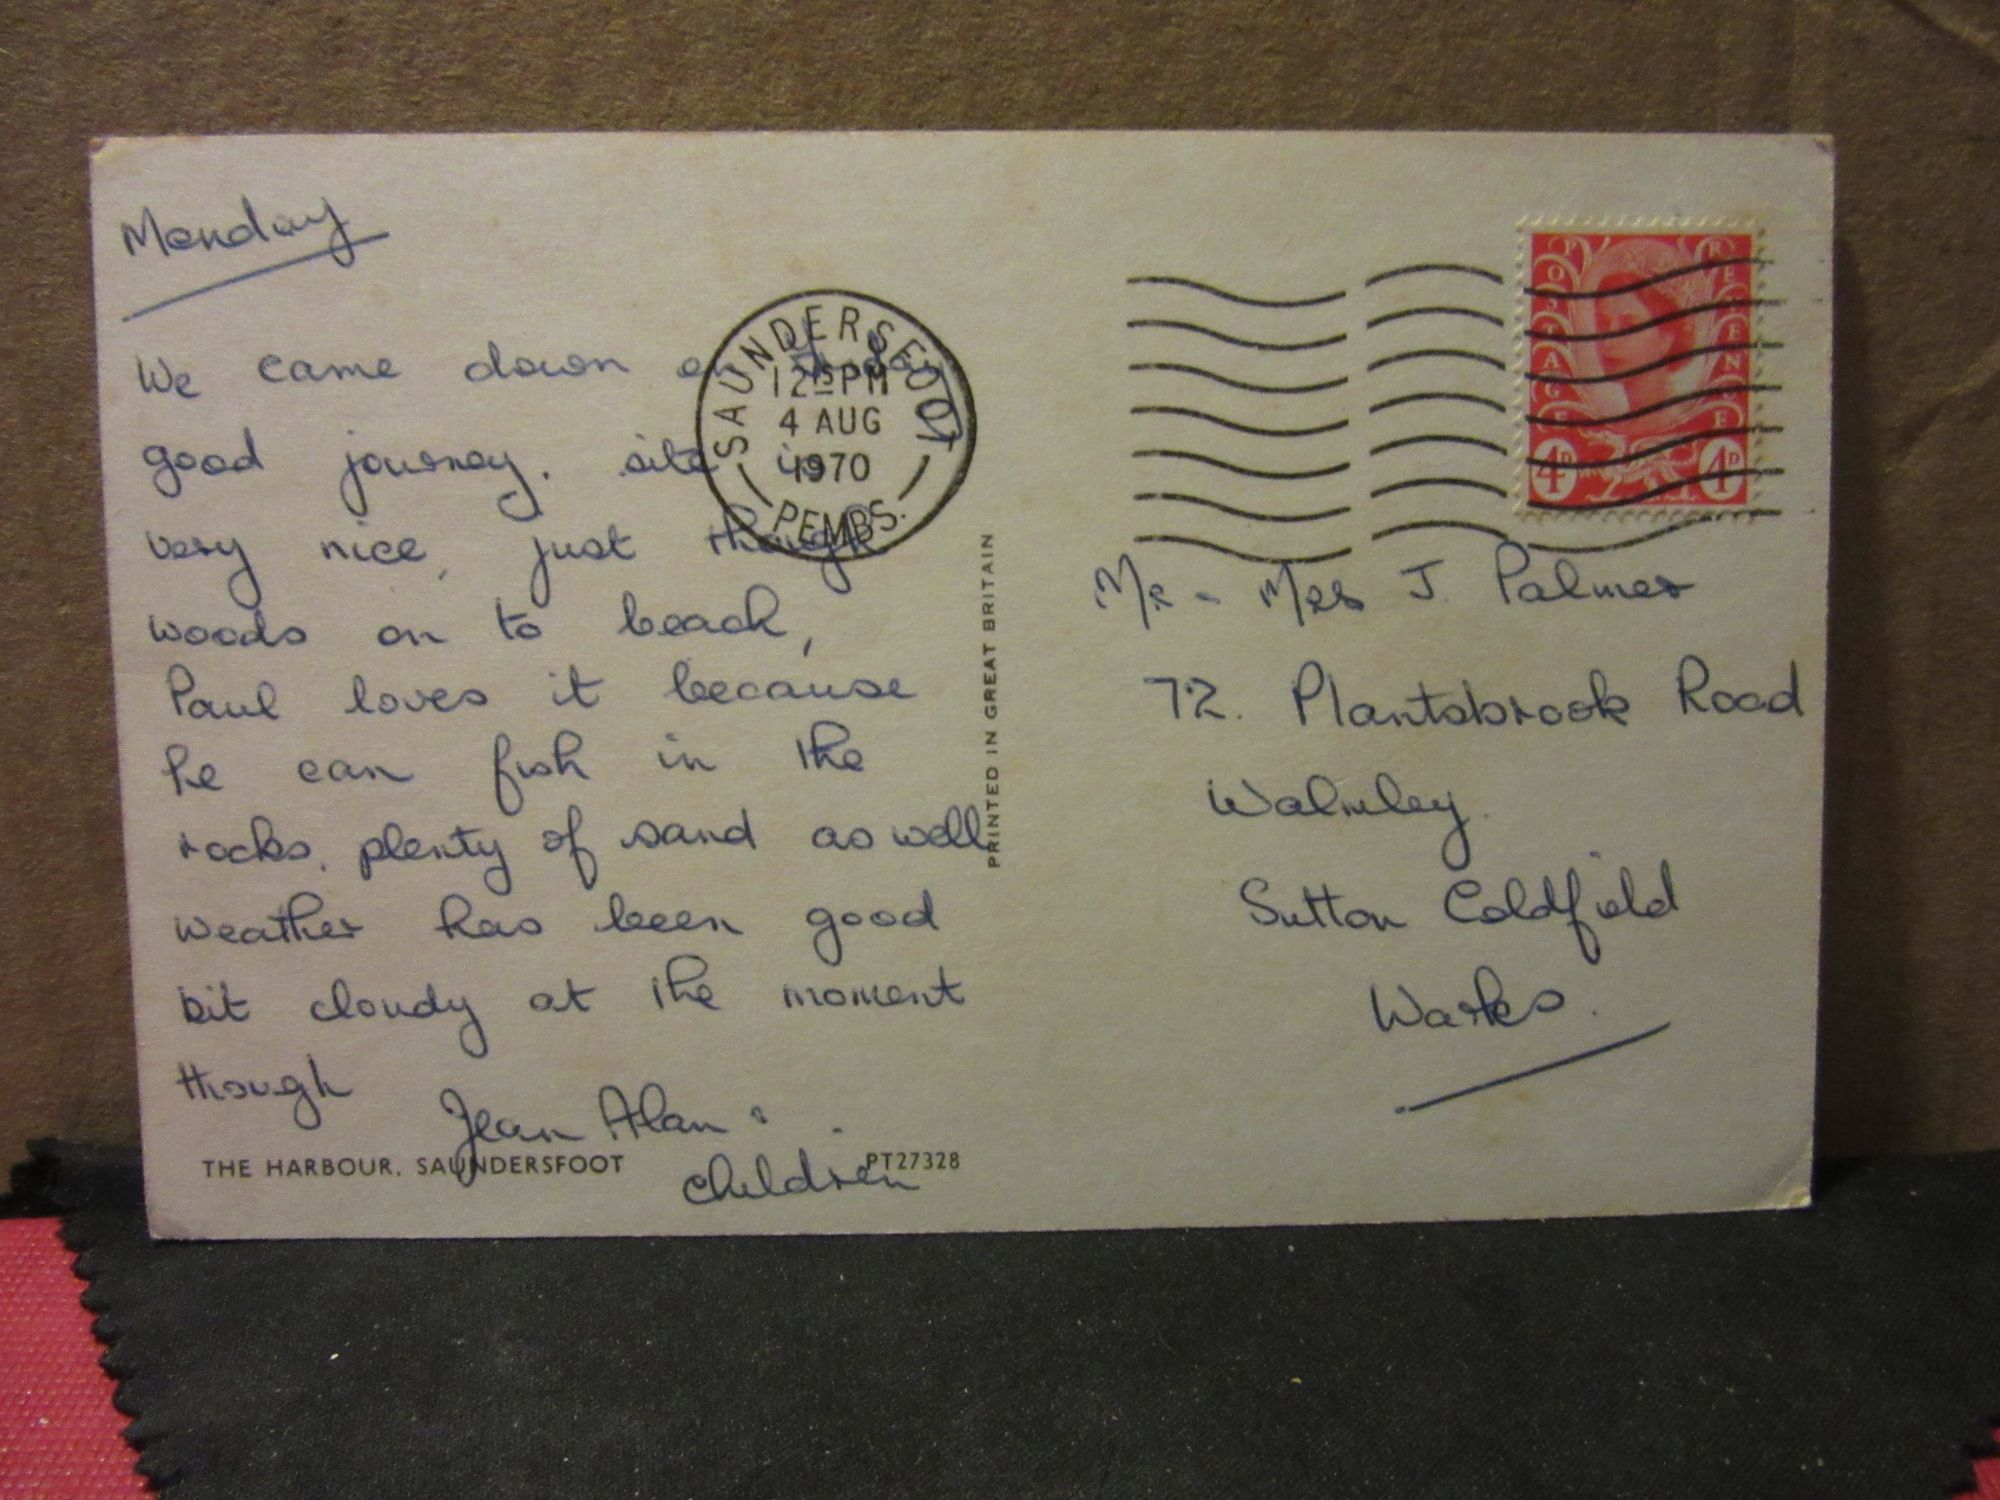 Monday
We came down on Friday
good journey. site is
very nice, just though
woods on to beach,
Paul loves it because
he can fish in the
rocks. plenty of sand as well
weather has been good
bit cloudy at the moment
though
Jean Alan &
children
THE HARBOUR, SAUNDERSFOOT
PT27328
PRINTED IN GREAT BRITAIN
SAUNDERSFOOT
12 15 PM
4 AUG
1970
PEMBS.
POSTAGE
REVENUE
4D
4D
Mr - Mrs J. Palmer
72. Plantsbrook Road
Walmley.
Sutton Coldfield
Warks.